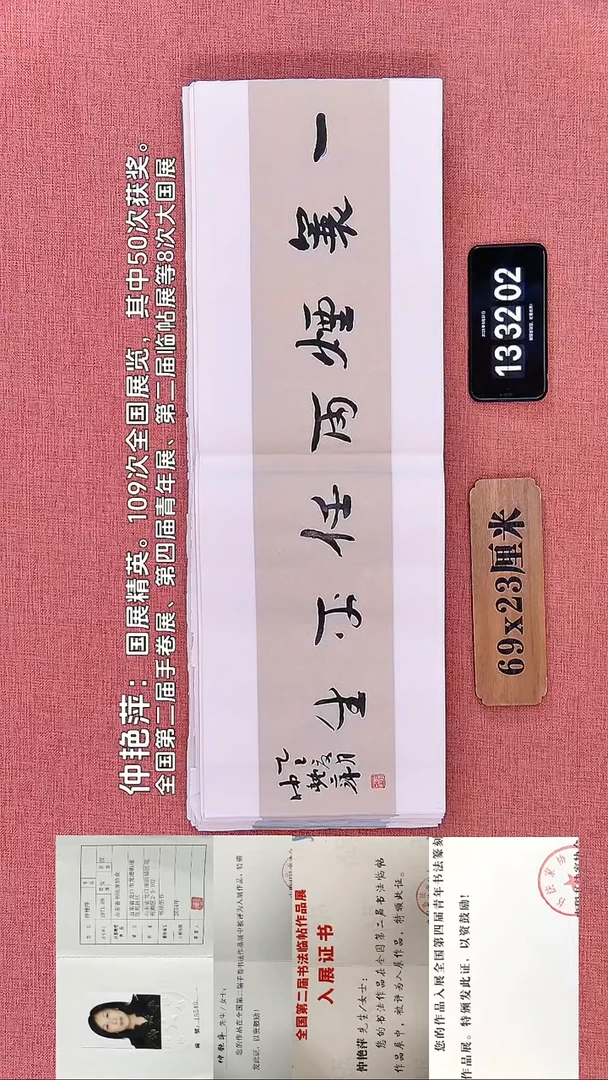 仲艳萍：国展精英。109次全国展览，其中50次获奖。
全国第二届手卷展、第四届青年展、第二届临帖展等8次大国展
一蓑煙雨任平生
13 32 02
69x23厘米
仲艳萍 先生/女士：
您的作品在全国第二届手卷书法作品展中被评为入展作品，特颁
发此证，以资鼓励！
全国第二届书法临帖作品展
入展证书
仲艳萍 先生/女士：
您的书法作品在全国第二届书法临帖
作品展中，被评为入展作品，特颁此证。
您的作品入展全国第四届青年书法篆刻
作品展。特颁发此证，以资鼓励！